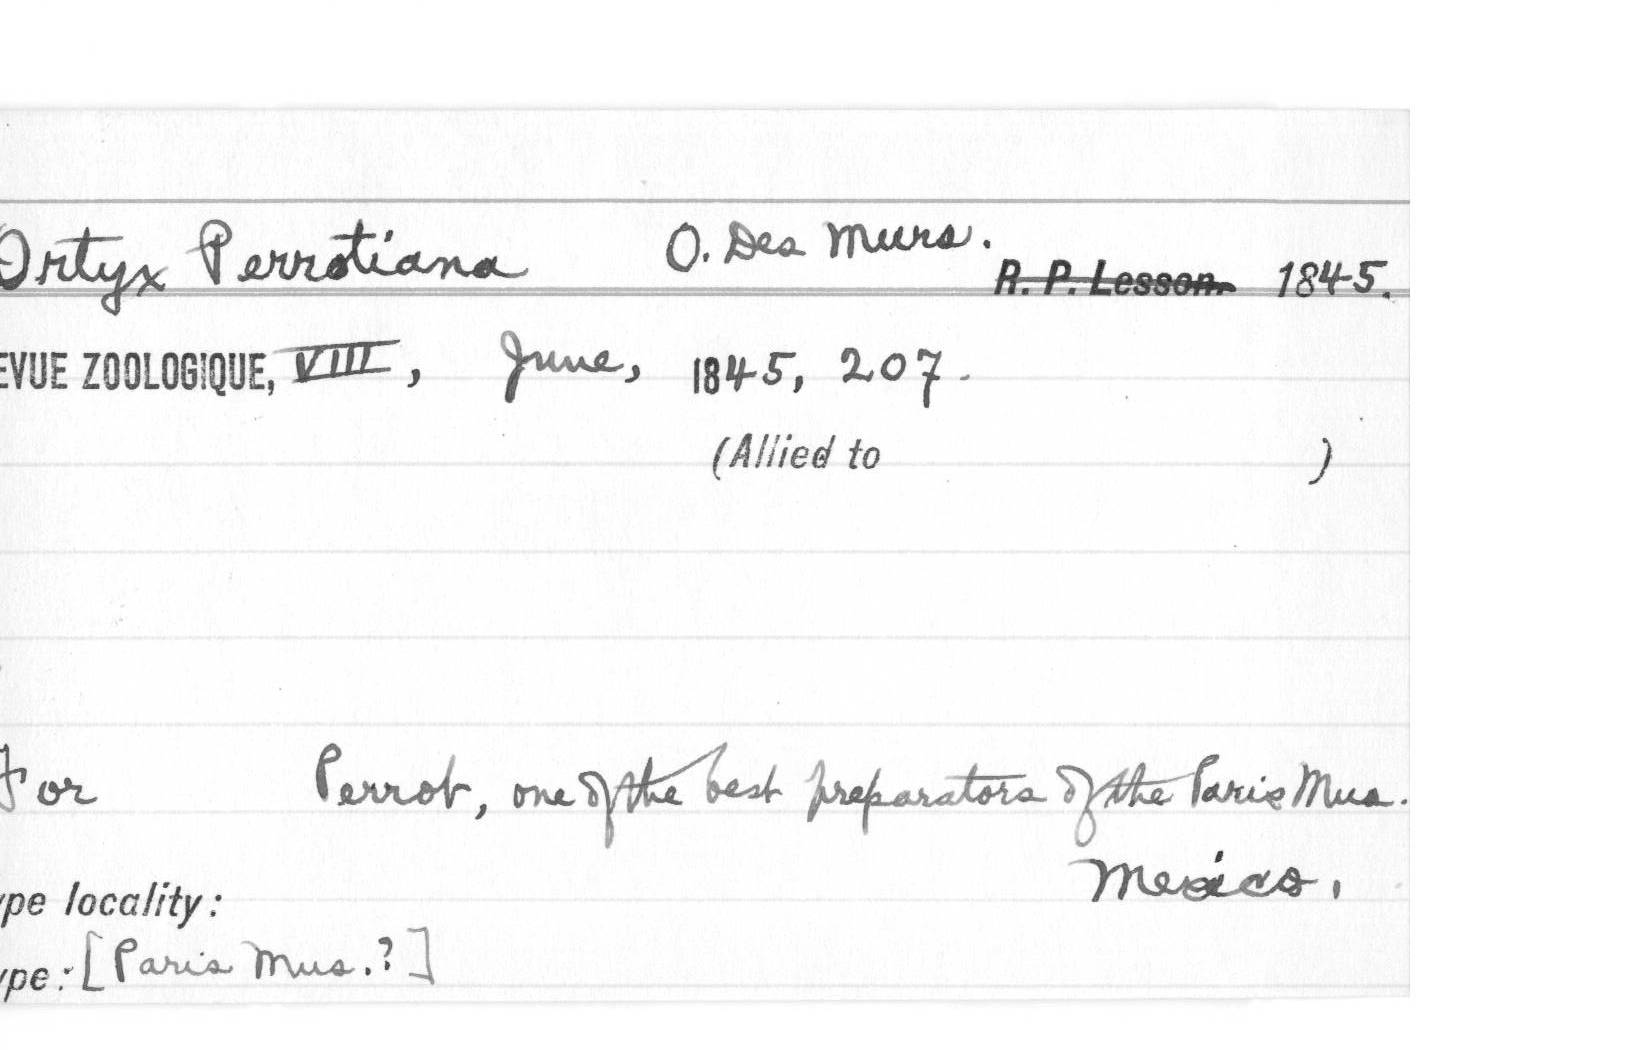 Ortyx Perrotiana O. Des Murs.
R. P. Lesson. 1845.
EVUE ZOOLOGIQUE, VIII, June, 1845, 207.
(Allied to )
For Perrot, one of the best preparators of the Paris Mus.
Mexico.
ype locality:
ype: [Paris Mus.?]